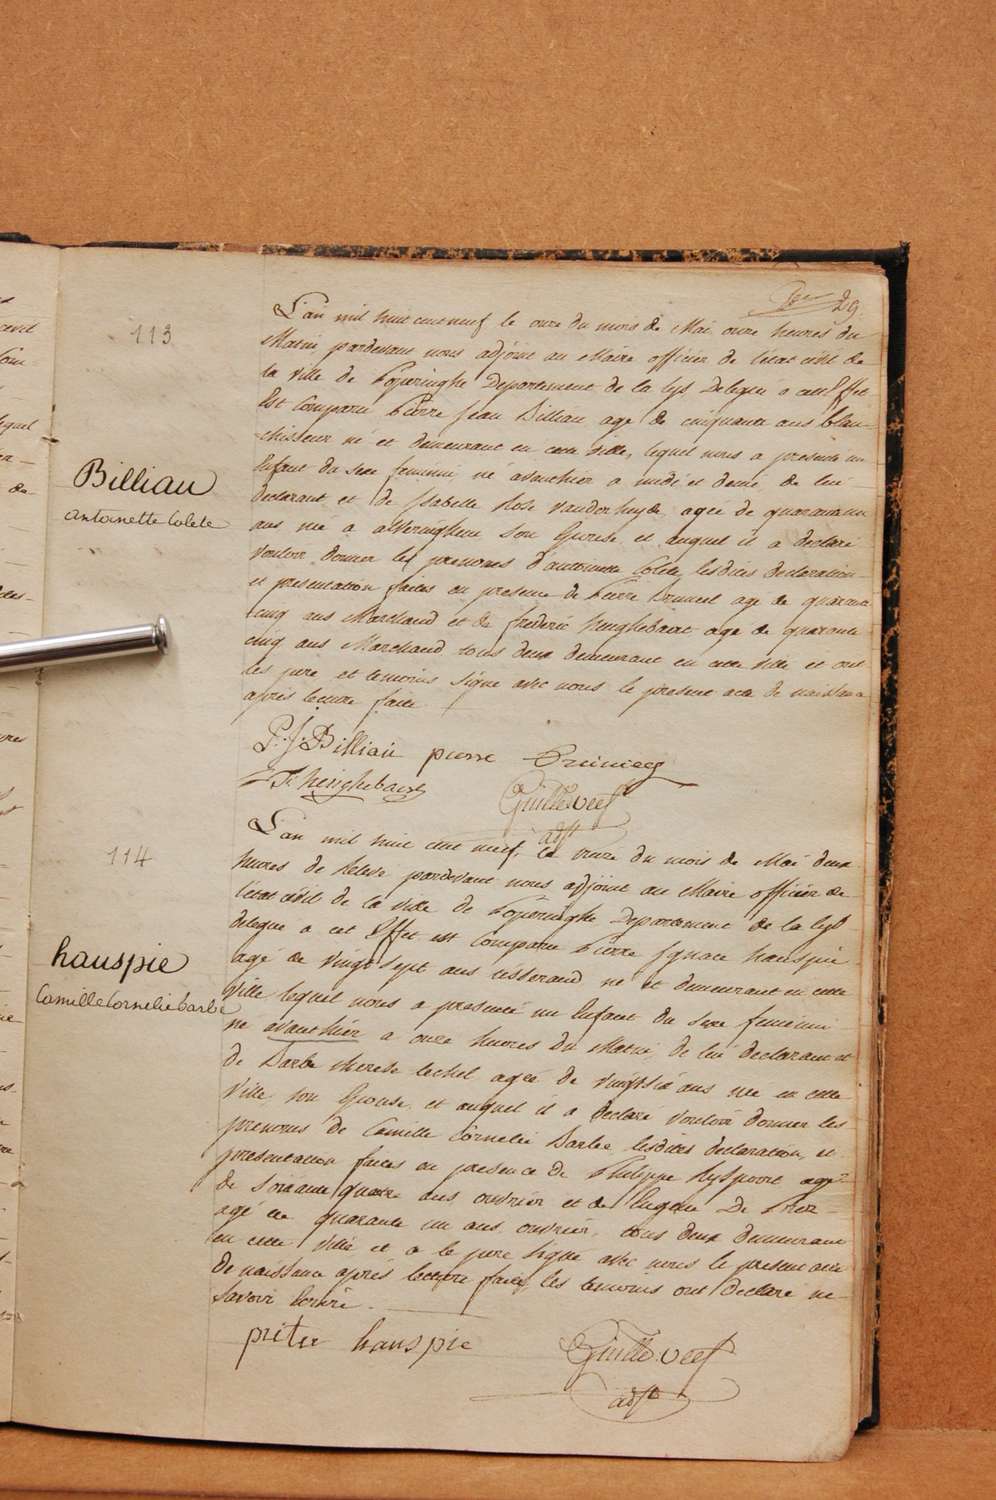 29.
113
L'an mil huit cent neuf le onze du mois de Mai onze heures du
Matin pardevant nous adjoint au Maire officier de l'etat civil de
la ville de Poperinghe Departement de la Lys Delegué a cet Effet
Est Comparu Pierre Jean Billiau age de cinquante ans blan-
chisseur né et demeurant en cette ville, lequel nous a presenté un
Enfant du sexe feminin, né avanthier a midi et demi, de lui
declarant et de Isabelle Rose Vanderheyde, agée de quarante un
ans née a alveringhem son Epouse, et auquel il a declaré
vouloir donner les prenoms d'antoinette Colete, lesdites declaration
et presentation faites en presence de Pierre age de quarante
cinq ans Marchand et de frederic henghebaert agé de quarante
cinq ans Marchand tous deux demeurant en cette ville et ont
les pere et temoins signé avec nous le present acte de naissance
après lecture faite
Billiau
antoinette Colete
P. J. Billiau pierre
F. henghebaert
adjt
114
L'an mil huit cent neuf, le onze du mois de Mai deux
heures de relevée, pardevant nous adjoint au Maire officier de
l'etat civil de la ville de Poperinghe Departement de la Lys
delegué a cet Effet est Comparu Pierre Ignace hauspie
agé de vingt sept ans tisserand né et demeurant en cette
ville lequel nous a presenté un Enfant du sexe feminin
né avanthier a onze heures du Matin, de lui declarant et
de Barbe therese agée de ans née en cette
ville, son Epouse, et auquel il a declaré vouloir donner les
prenoms de Camille Cornelie Barbe, lesdites declaration, et
presentation faites en presence de Philippe agé
de soixante quatre ans ouvrier et de Eugene De
agé de quarante un ans ouvrier, tous deux demeurant
en cette ville et a le pere signé avec nous le present acte
de naissance après lecture faite, les temoins ont declaré ne
savoir Ecrire.
hauspie
Camille Cornelie barbe
pieter hauspie
adjt